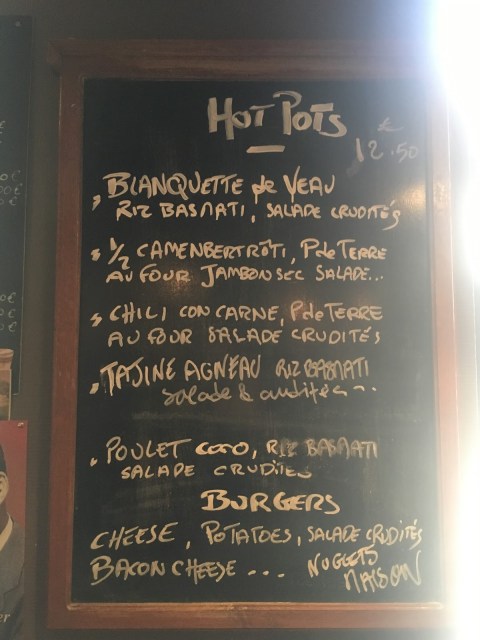 HOT POTS
€
12.50
BLANQUETTE de VEAU
RIZ BASMATI, SALADE CRUDITÉS
1/2 CAMENBERT RÔTI, P de TERRE
AU FOUR JAMBON SEC SALADE...
CHILI CON CARNE, P de TERRE
AU FOUR SALADE CRUDITÉS
TAJINE AGNEAU RIZ BASMATI
Salade & crudités
POULET COCO, RIZ BASMATI
SALADE CRUDITES
BURGERS
CHEESE, POTATOES, SALADE CRUDITÉS
BACON CHEESE ... NUGGETS
MAISON